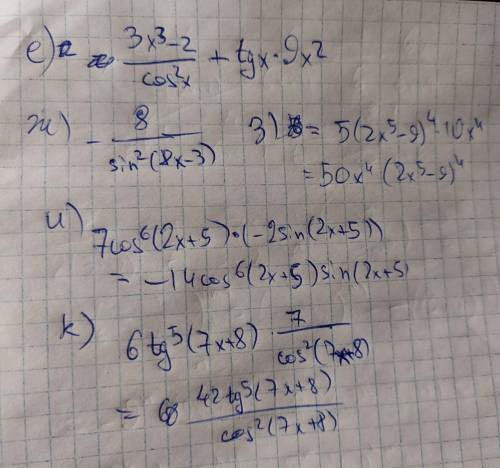 е) (3x³-2)/cos²x + tgx·9x²
ж) - 8/sin²(8x-3)
з) = 5(2x⁵-9)⁴·10x⁴
= 50x⁴(2x⁵-9)⁴
и) 7cos⁶(2x+5)·(-2sin(2x+5))
= -14cos⁶(2x+5)sin(2x+5)
к) 6tg⁵(7x+8)·7/cos²(7x+8)
= 42tg⁵(7x+8)/cos²(7x+8)